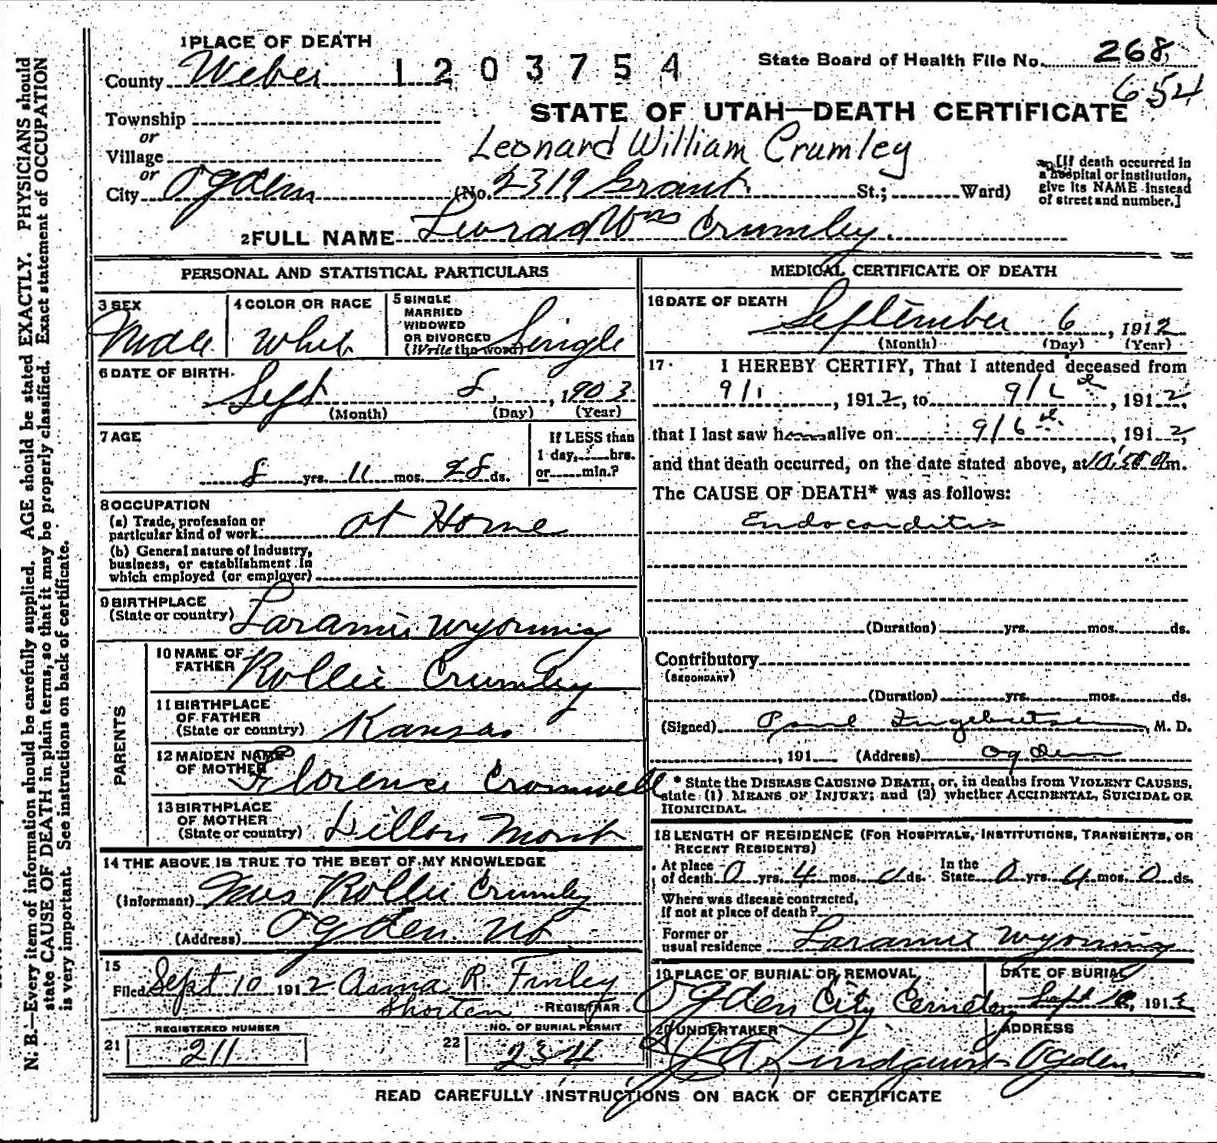 1 PLACE OF DEATH
County Weber 1203754
State Board of Health File No. 268
654
Township
STATE OF UTAH—DEATH CERTIFICATE
or
Village
Leonard William Crumley
or
City Ogden (No. 2319 Grant St.; Ward)
[If death occurred in
a hospital or institution,
give its NAME instead
of street and number.]
2 FULL NAME Leonard Wm Crumley
PERSONAL AND STATISTICAL PARTICULARS
3 SEX
Male
4 COLOR OR RACE
White
5 SINGLE
MARRIED
WIDOWED
OR DIVORCED
(Write the word) Single
6 DATE OF BIRTH
Sept 8, 1903
(Month) (Day) (Year)
7 AGE
8 yrs. 11 mos. 28 ds.
If LESS than
1 day, hrs.
or min.?
8 OCCUPATION
(a) Trade, profession or
particular kind of work at Home
(b) General nature of industry,
business, or establishment in
which employed (or employer)
9 BIRTHPLACE
(State or country) Laramie Wyoming
PARENTS
10 NAME OF
FATHER Rollie Crumley
11 BIRTHPLACE
OF FATHER
(State or country) Kansas
12 MAIDEN NAME
OF MOTHER Florence Cromwell
13 BIRTHPLACE
OF MOTHER
(State or country) Dillon Mont
14 THE ABOVE IS TRUE TO THE BEST OF MY KNOWLEDGE
(Informant) Mrs Rollie Crumley
(Address) Ogden Ut
15
Filed Sept 10 1912 Anna R. Finley
Shorten REGISTRAR
REGISTERED NUMBER
21 211
NO. OF BURIAL PERMIT
22 234
MEDICAL CERTIFICATE OF DEATH
16 DATE OF DEATH
September 6, 1912
(Month) (Day) (Year)
17 I HEREBY CERTIFY, That I attended deceased from
9/1, 1912, to 9/6, 1912,
that I last saw h alive on 9/6, 1912,
and that death occurred, on the date stated above, at 10:50 m.
The CAUSE OF DEATH* was as follows:
Endocarditis
(Duration) yrs. mos. ds.
Contributory
(SECONDARY)
(Duration) yrs. mos. ds.
(Signed) Paul Ingebretsen, M. D.
, 191 (Address) Ogden
* State the DISEASE CAUSING DEATH, or, in deaths from VIOLENT CAUSES,
state (1) MEANS OF INJURY; and (2) whether ACCIDENTAL, SUICIDAL OR
HOMICIDAL.
18 LENGTH OF RESIDENCE (FOR HOSPITALS, INSTITUTIONS, TRANSIENTS, OR
RECENT RESIDENTS)
At place
of death 0 yrs. 4 mos. 0 ds.
In the
State 0 yrs. 4 mos. 0 ds.
Where was disease contracted,
if not at place of death?
Former or
usual residence Laramie Wyoming
19 PLACE OF BURIAL OR REMOVAL
Ogden City Cemetery
DATE OF BURIAL
Sept 10, 1912
20 UNDERTAKER
Lindquist
ADDRESS
Ogden
READ CAREFULLY INSTRUCTIONS ON BACK OF CERTIFICATE
N. B.—Every item of information should be carefully supplied. AGE should be stated EXACTLY. PHYSICIANS should
state CAUSE OF DEATH in plain terms, so that it may be properly classified. Exact statement of OCCUPATION
is very important. See instructions on back of certificate.